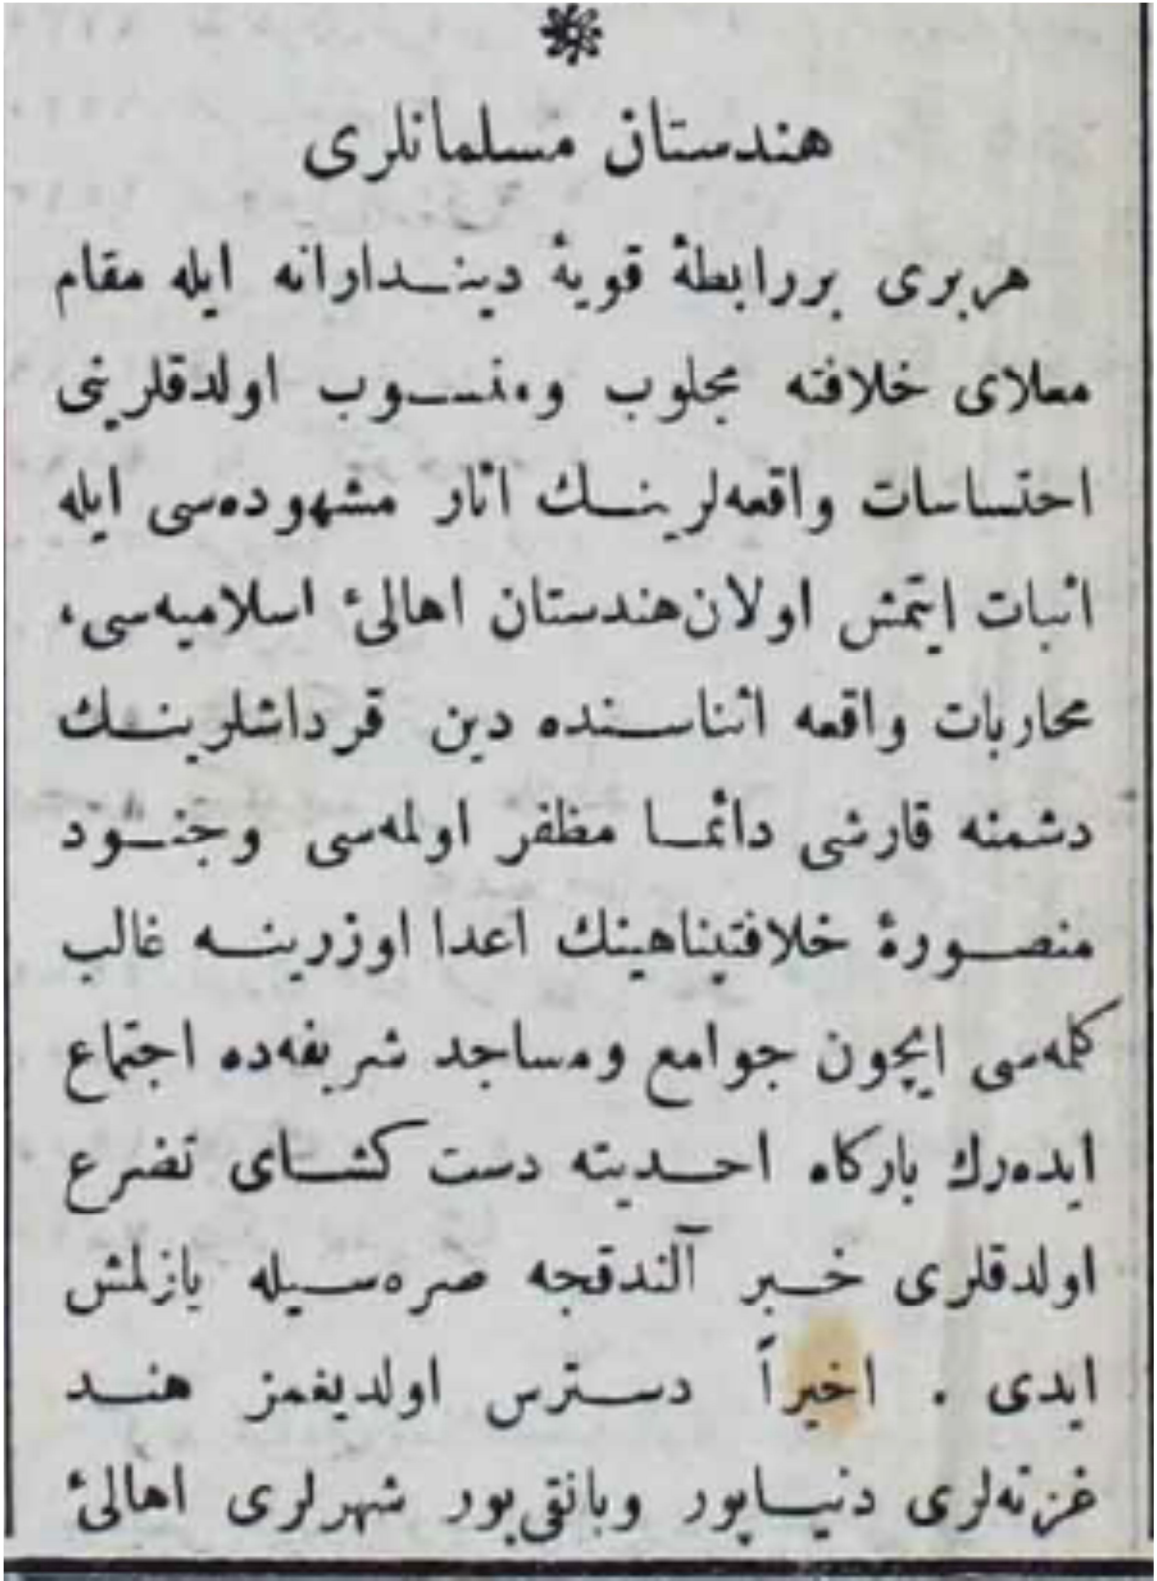 هندستان مسلمانلری
هربری بررابطۀ قویۀ دینــدارانه ایله مقام
معلای خلافته مجلوب ومنســوب اولدقلرینی
احتساسات واقعه‌لرینــك اثار مشهوده‌سی ایله
اثبات ایتمش اولان هندستان اهالیٔ اسلامیه‌سی،
محاربات واقعه اثناســنده دین قرداشلرینــك
دشمنه قارشی دائمــا مظفر اولمه‌سی وجنــود
منصــورۀ خلافتپناهینك اعدا اوزرینــه غالب
كلمه‌سی ایچون جوامع ومساجد شریفه‌ده اجتماع
ایده‌رك باركاه احــدیته دست كشــای تضرع
اولدقلری خــبر آلندقجه صره‌ســیله یازلمش
ایدی . اخیراً دســترس اولدیغمز هنــد
غزته‌لری دنیــاپور وبانقی‌پور شهرلری اهالیٔ